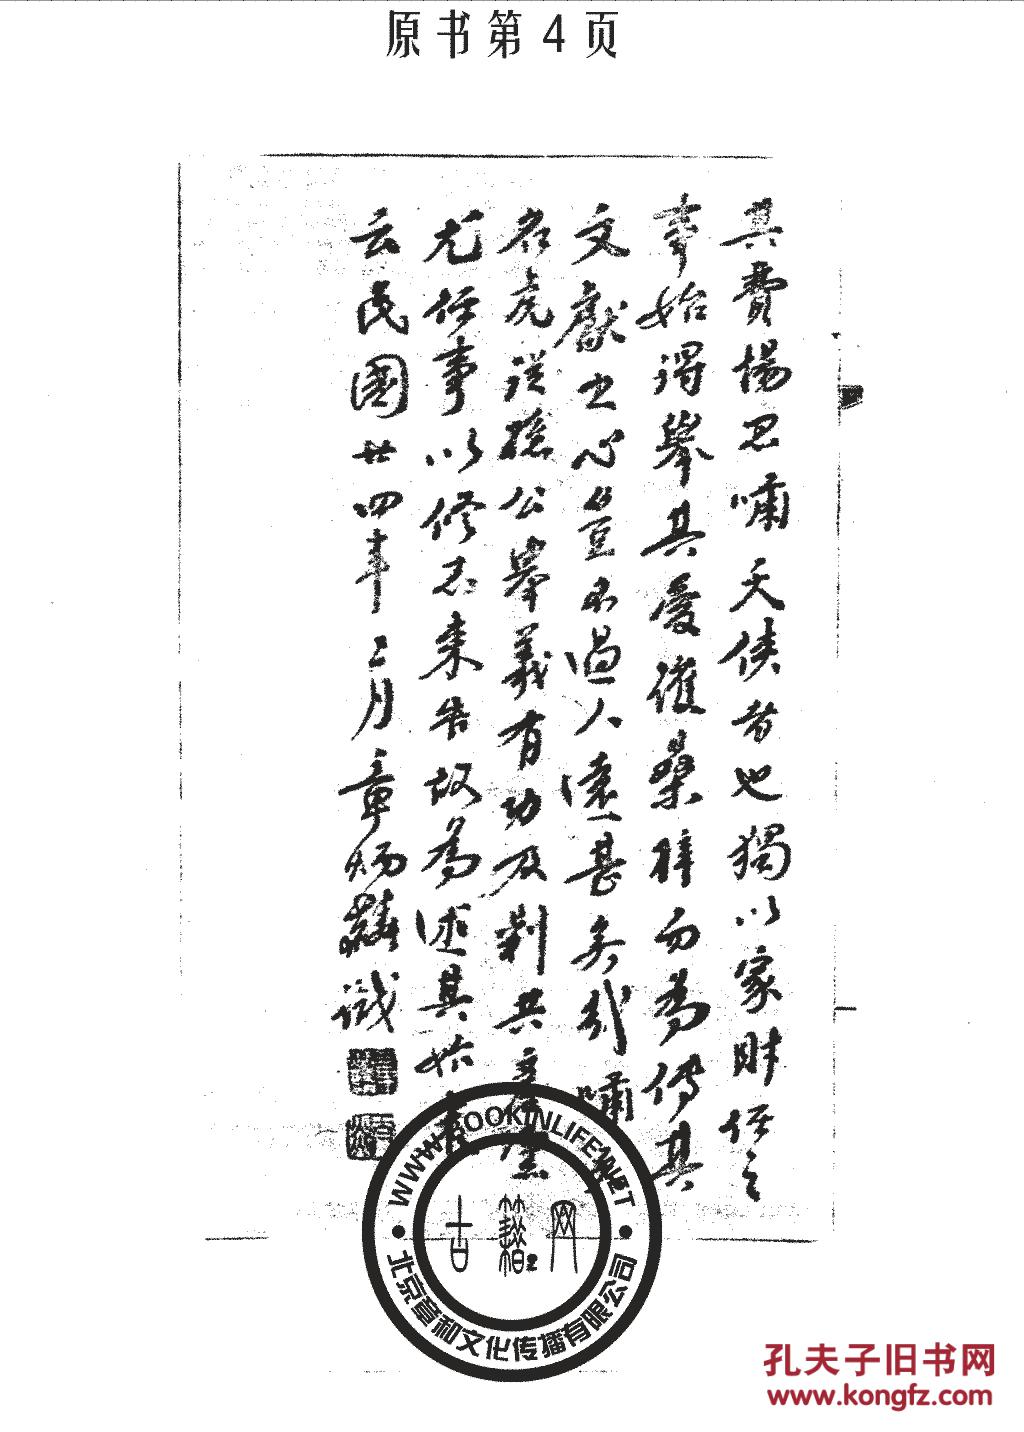 原书第4页
其費楊君嘯天俠者也獨以家財任之
事始得舉其憂維桑梓而為傳其
文獻之心豈不過人遠甚矣哉嘯天
名虎從孫公舉義有功及剿共產黨
尤任事以修志來告故為述其始末
云民國廿四年三月章炳麟識
WWW.BOOKINLIFE.NET
古籍网
北京章和文化传播有限公司
孔夫子旧书网
www.kongfz.com